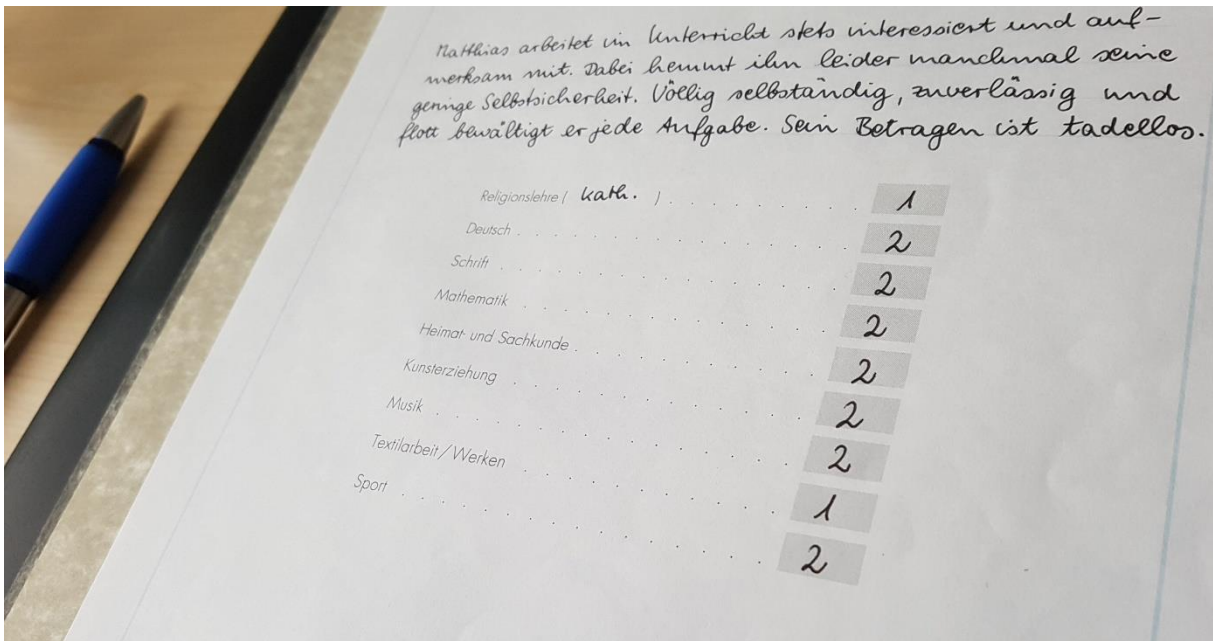 Matthias arbeitet im Unterricht stets interessiert und auf-
merksam mit. Dabei hemmt ihn leider manchmal seine
geringe Selbstsicherheit. Völlig selbständig, zuverlässig und
flott bewältigt er jede Aufgabe. Sein Betragen ist tadellos.
Religionslehre ( kath. ) . . . . . . . . . 1
Deutsch . . . . . . . . . . . . . . . 2
Schrift . . . . . . . . . . . . . . . 2
Mathematik . . . . . . . . . . . . . . 2
Heimat- und Sachkunde . . . . . . . . . . . 2
Kunsterziehung . . . . . . . . . . . . . 2
Musik . . . . . . . . . . . . . . . 2
Textilarbeit / Werken . . . . . . . . . . . 1
Sport . . . . . . . . . . . . . . . 2